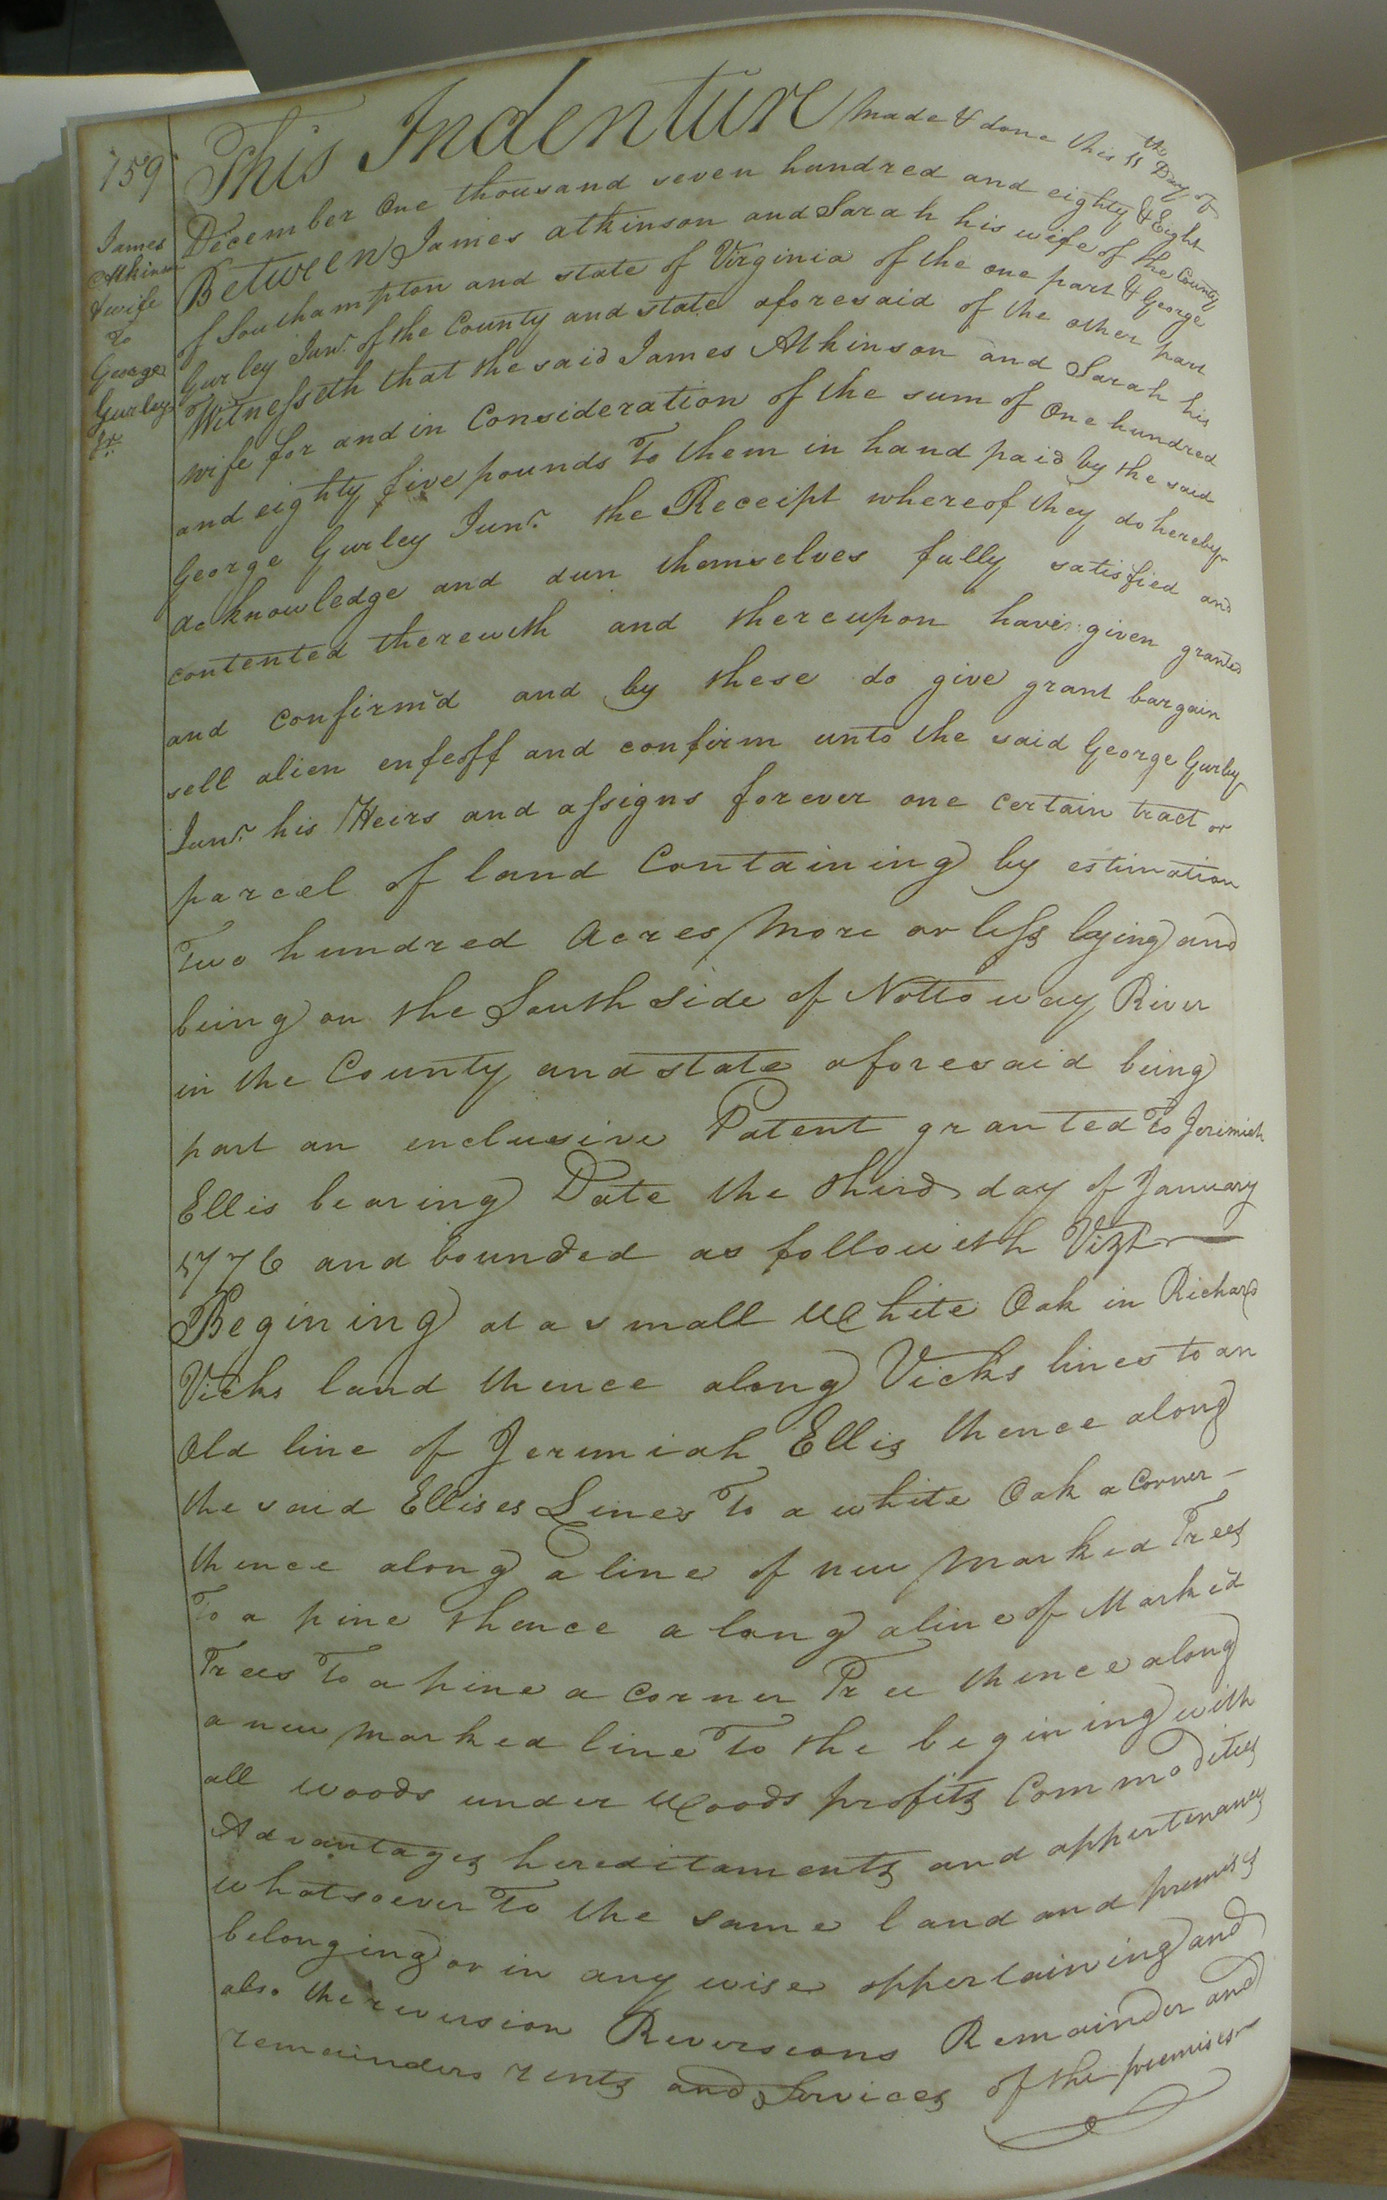 159
James
Atkinson
& wife
To
George
Gurley
Jr.
This Indenture made & done this 11th Day of
December One thousand seven hundred and eighty & Eight
Between James atkinson and Sarah his wife of the County
of Southampton and state of Virginia of the one part & George
Gurley Junr. of the County and state aforesaid of the other part
Witnesseth that the said James Atkinson and Sarah his
wife for and in Consideration of the sum of One hundred
and eighty five pounds To them in hand paid by the said
George Gurley Junr. the Receipt whereof they do hereby
acknowledge and dun themselves fully satisfied and
contented therewith and thereupon have given granted
and confirm'd and by these do give grant bargain
sell alien enfeoff and confirm unto the said George Gurley
Junr. his Heirs and assigns forever one certain tract or
parcel of land Containing by estimation
Two hundred Acres more or less lying and
being on the South side of Nottoway River
in the County and state aforesaid being
part an enclusive Patent granted To Jerimiah
Ellis bearing Date the third day of January
1776 and bounded as followeth Vizt
Begining at a small White Oak in Richard
Vicks land thence along Vicks lines to an
Old line of Jeremiah Ellis thence along
the said Ellises Lines To a white Oak a Corner
thence along a line of new marked Trees
To a pine thence along a line of Mark'd
Trees To a pine a Corner Tree thence along
a new marked line To the begining with
all woods under Woods profits Commodities
Advantages hereditaments and appertenances
whatsoever To the same land and premises
belonging or in any wise appertaining and
also the reversion Reversions Remainder and
remainders rents and Services of the premises